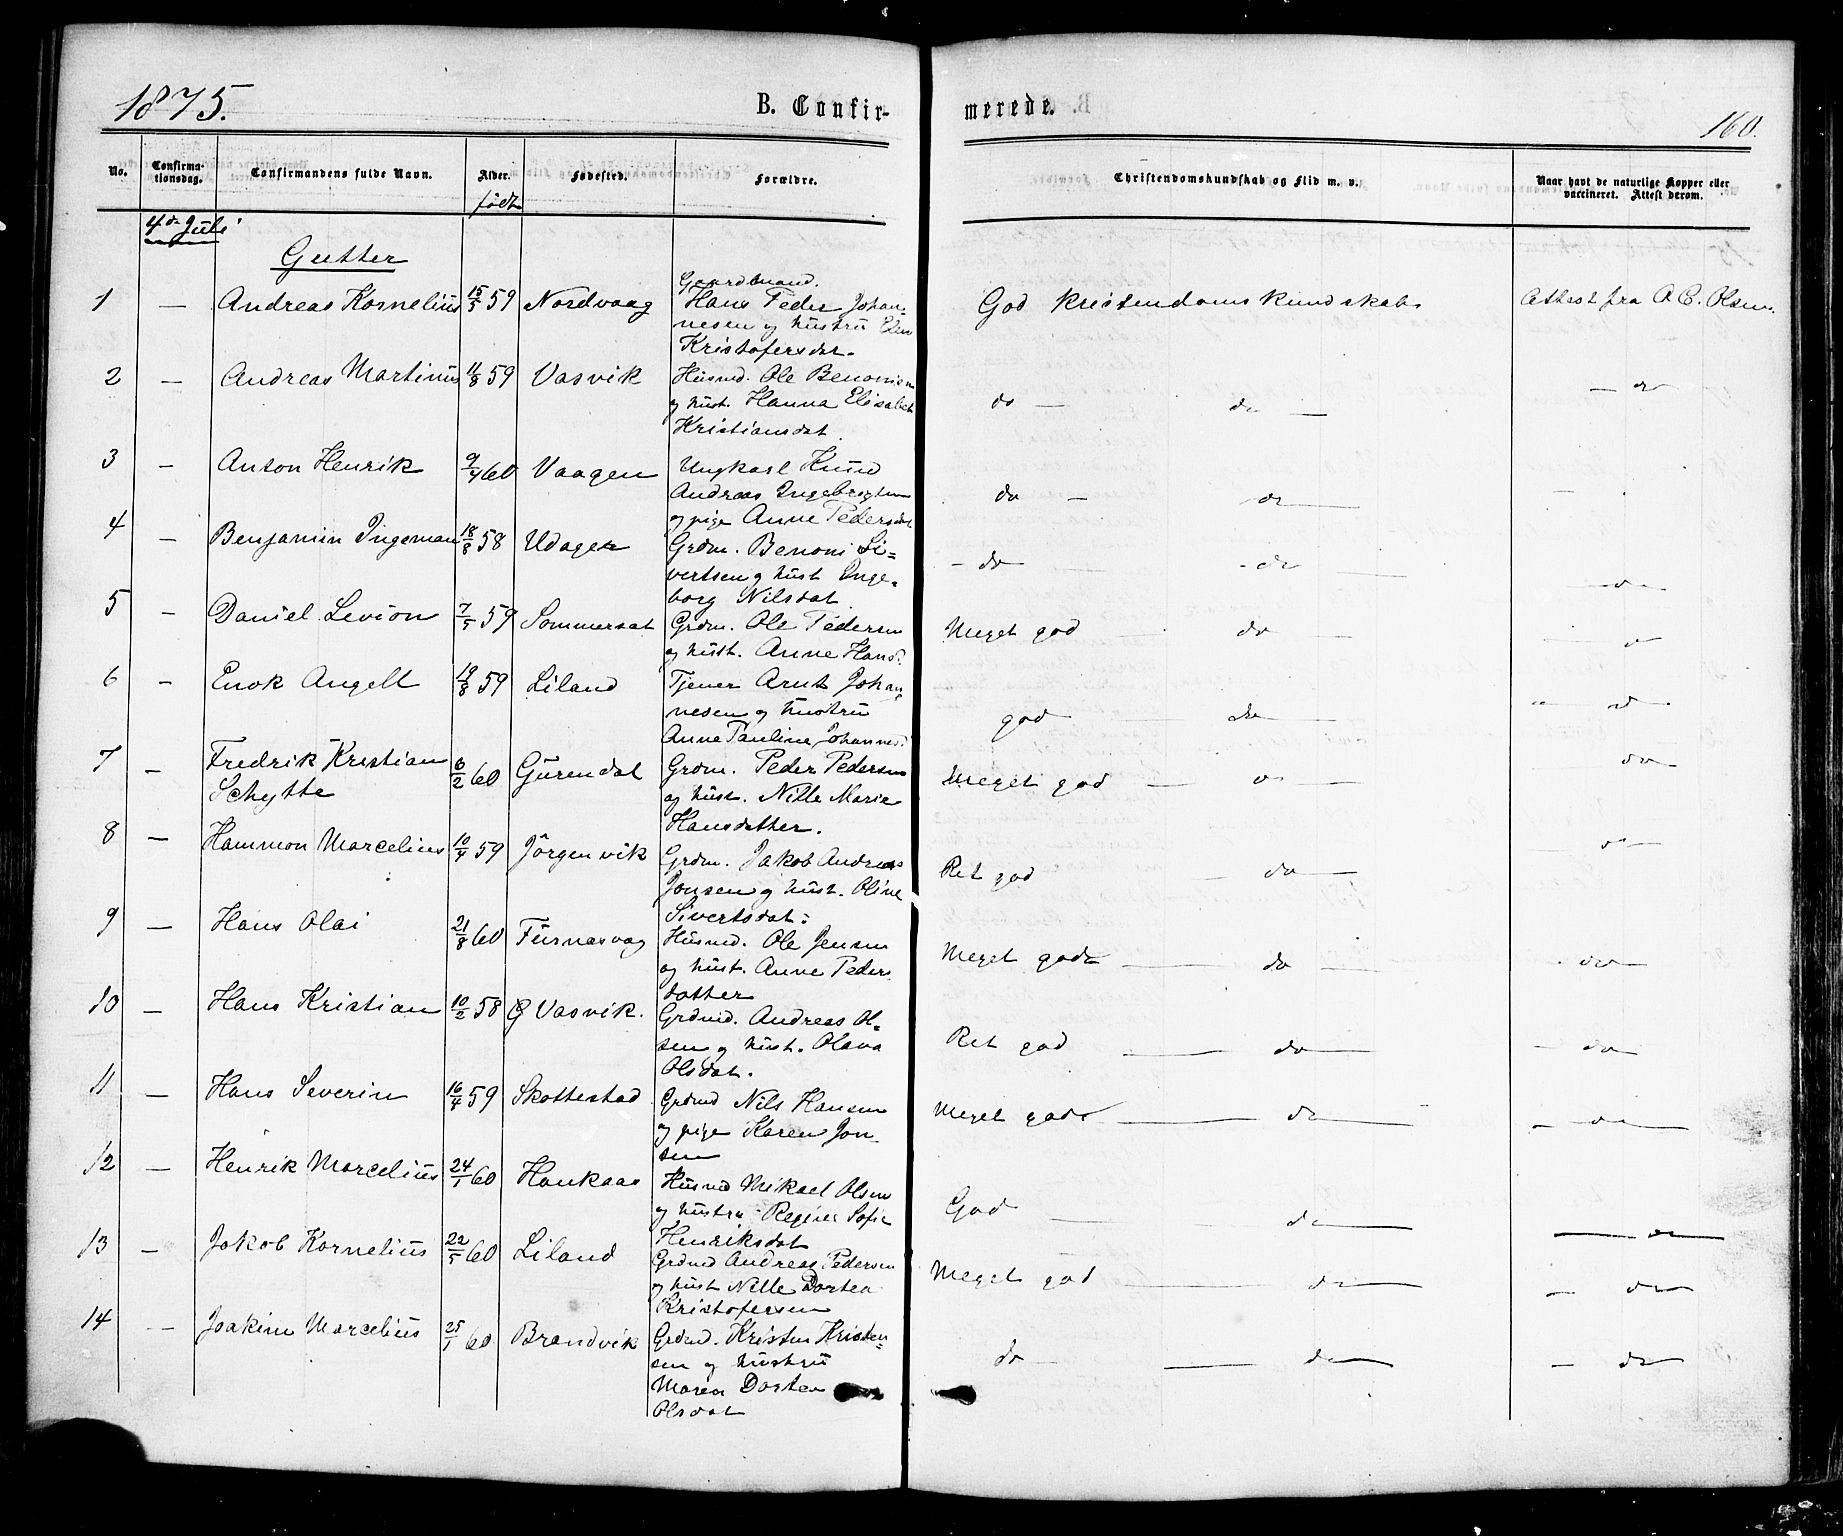 1875. B. Confirmerede. 160.
No. Confirmationsdag. Confirmandens fulde Navn. Alder. Fødested. Forældre. Christendomskundskab og Flid m. v. Naar havt de naturlige Kopper eller vaccineret. Attest derom.
født
4de Juli
Gutter
1 — Andreas Kornelius 15/5 59 Nordvaag Gaardmand. Hans Peder Johan- God Kristendomskundskab Attest fra A C. Olsen.
nesen og hustru Elen
Kristofersdat.
2 — Andreas Martinus 11/8 59 Vasvik Husmd. Ole Benonisen do — do — — do
og hust. Hanna Elisabet
Kristiansdat.
3 — Anton Henrik 9/4 60 Vaagen Ungkarl Knud do — do —
Andreas Ingebrigtsen
og pige Anne Pedersdat
4 — Benjamin Ingeman 18/8 58 Udager Grdm. Benoni Si- - do - do — — do
vertsen og hust Inge-
borg Nilsdat
5 — Daniel Levion 7/5 59 Sommerset Grdm. Ole Pedersen Meget god — do — — do
og hust. Anne Hansd.
6 — Enok Angelt 19/8 59 Liland Tjener Arnt Johan- god — do — — do
nesen og hustru
Anne Pauline Johannesd.
7 — Fredrik Kristian 6/2 60 Gurendal Grdm. Peder Pedersen Meget god — do — do
Schytte og hust. Nille Marie
Hansdatter.
8 — Hammon Marcelius 10/4 59 Jörgenvik Grdm. Jakob Andreas Ret god — do — — do
Jonsen og hust. Oline
Sivertsdat.
9 — Hans Olai 21/8 60 Furnesvag Husmd. Ole Jensen Meget god — do — - do
og hust. Anne Peders
datter
10 — Hans Kristian 10/2 58 Vasvik. Grdmd. Andreas Ol- Ret god — do — — do
sen og hust. Olava
Olsdat.
11 — Hans Severin 16/4 59 Skottestad Grdmd Nils Hansen Meget god — do — — do
og pige Karen Jon-
sen
12 — Henrik Marcelius 24/1 60 Haukaas Husmd Mikael Olsen God — do — — do
og hustru Regine Sofie
Henriksdat
13 — Jakob Kornelius 22/5 60 Liland Grdmd Andreas Pedersen Meget god — do — — do
og hust Nille Dortea
Kristofersen
14 — Joakim Marcelius 25/1 60 Brandvik Grdmd. Kristen Kristen- do — do — — do
sen og hustru
Maren Dortea
Olsdat